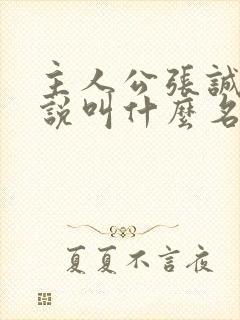 主人公張誠
說叫什麼名
夏夏不言夜